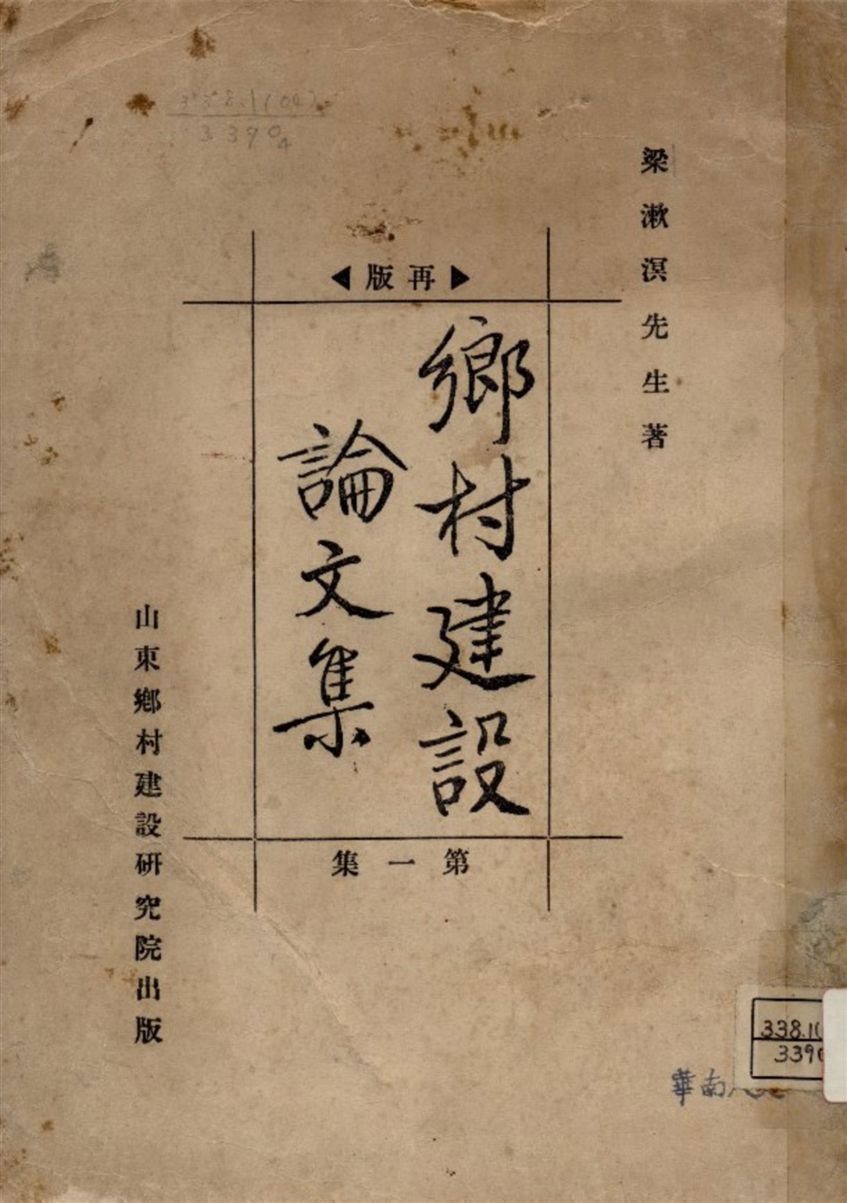 梁漱溟先生著
再版
鄉村建設
論文集
第一集
山東鄉村建設研究院出版
338.1(
3390
華南